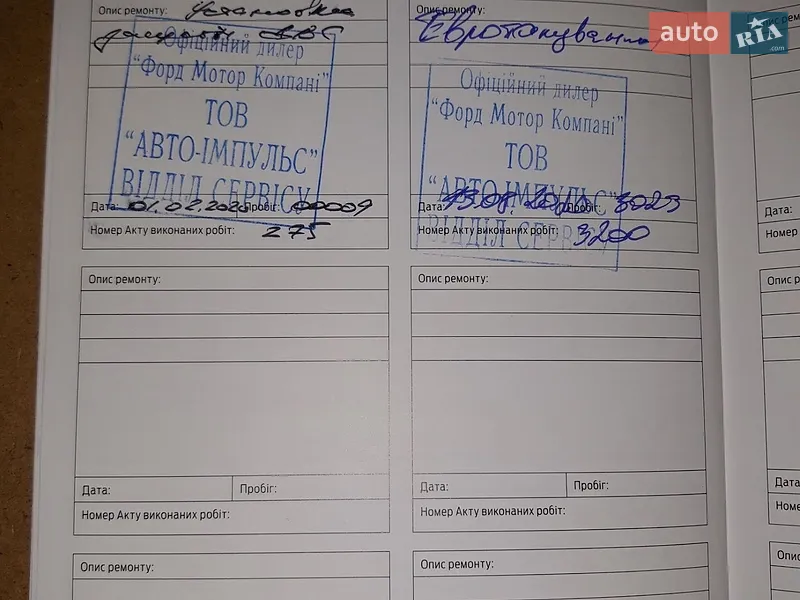 Опис ремонту: Установка
защиты ДВС
Офіційний дилер
"Форд Мотор Компані"
ТОВ
"АВТО-ІМПУЛЬС"
ВІДДІЛ СЕРВІСУ
Дата: 01.02.2020 Пробіг: 00009
Номер Акту виконаних робіт: 275
Опис ремонту:
Евротонування
Офіційний дилер
"Форд Мотор Компані"
ТОВ
"АВТО-ІМПУЛЬС"
ВІДДІЛ СЕРВІСУ
Дата: Пробіг: 3023
Номер Акту виконаних робіт: 3200
auto RIA .com
Дата:
Номер
Опис ремонту:
Дата: Пробіг:
Номер Акту виконаних робіт:
Опис ремонту:
Дата: Пробіг:
Номер Акту виконаних робіт:
Опис р
Дата
Номе
Опис ремонту:
Опис ремонту:
Опис